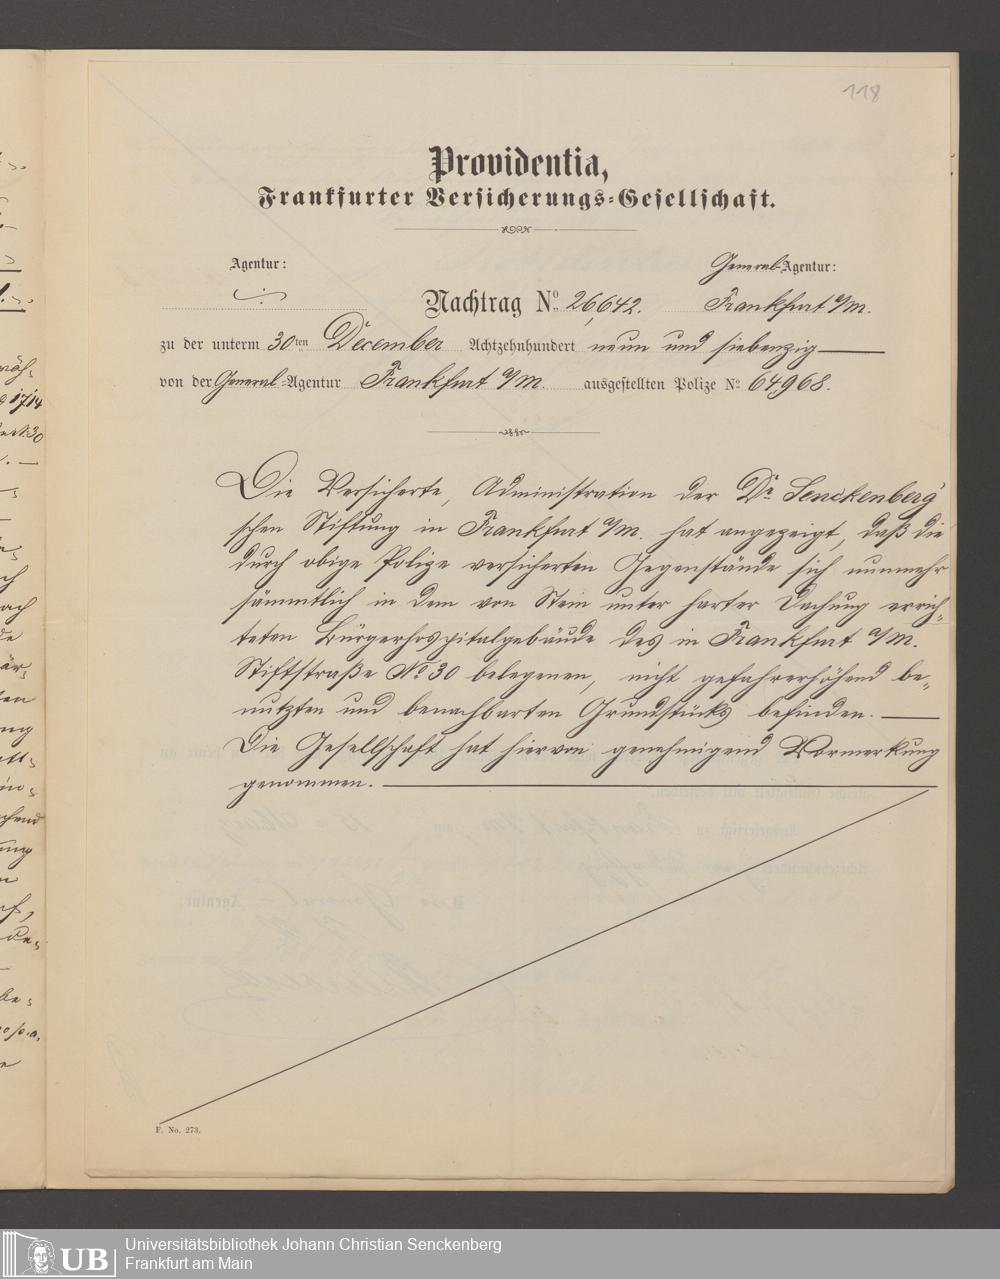 118
Providentia,
Frankfurter Versicherungs-Gesellschaft.
Agentur:
General-Agentur:
Nachtrag No. 26,642. Frankfurt a/M.
zu der unterm 30ten December Achtzehnhundert neun und siebenzig
von der General-Agentur Frankfurt a/M. ausgestellten Polize No. 64968.
Die Versicherte, Administration der Dr. Senckenberg'
schen Stiftung in Frankfurt a/M. hat angezeigt, daß die
durch obige Polize versicherten Gegenstände sich nunmehr
sämmtlich in dem von Stein unter harter Dachung errich-
teten Bürgerhospitalgebäude des in Frankfurt a/M.
Stiftstraße No. 30 belegenen, nicht gefahrerhöhend be-
nutzten und benachbarten Grundstücks befinden.
Die Gesellschaft hat hiervon genehmigend Vormerkung
genommen.
F. No. 273.
UB
Universitätsbibliothek Johann Christian Senckenberg
Frankfurt am Main